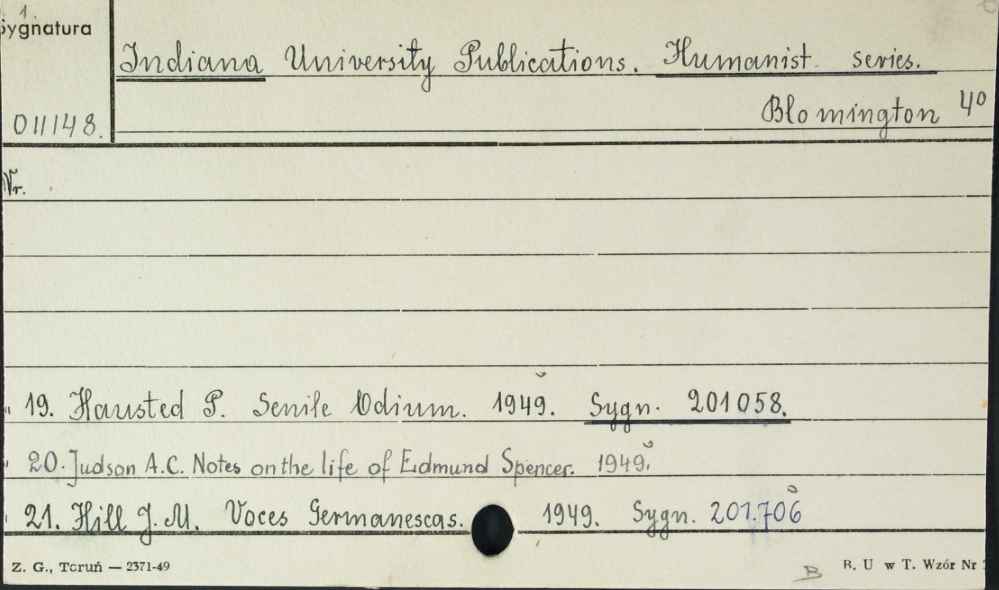 1
Sygnatura
Indiana University Publications. Humanist. series.
Blomington 4°
011148.
Nr.
" 19. Hausted P. Senile Odium. 1949. Sygn. 201058.
" 20. Judson A.C. Notes on the life of Eidmund Spencer. 1949.
" 21. Hill J. M. Voces Germanescas. 1949. Sygn. 201.706
Z. G., Toruń — 2371-49
B
B. U w T. Wzór Nr